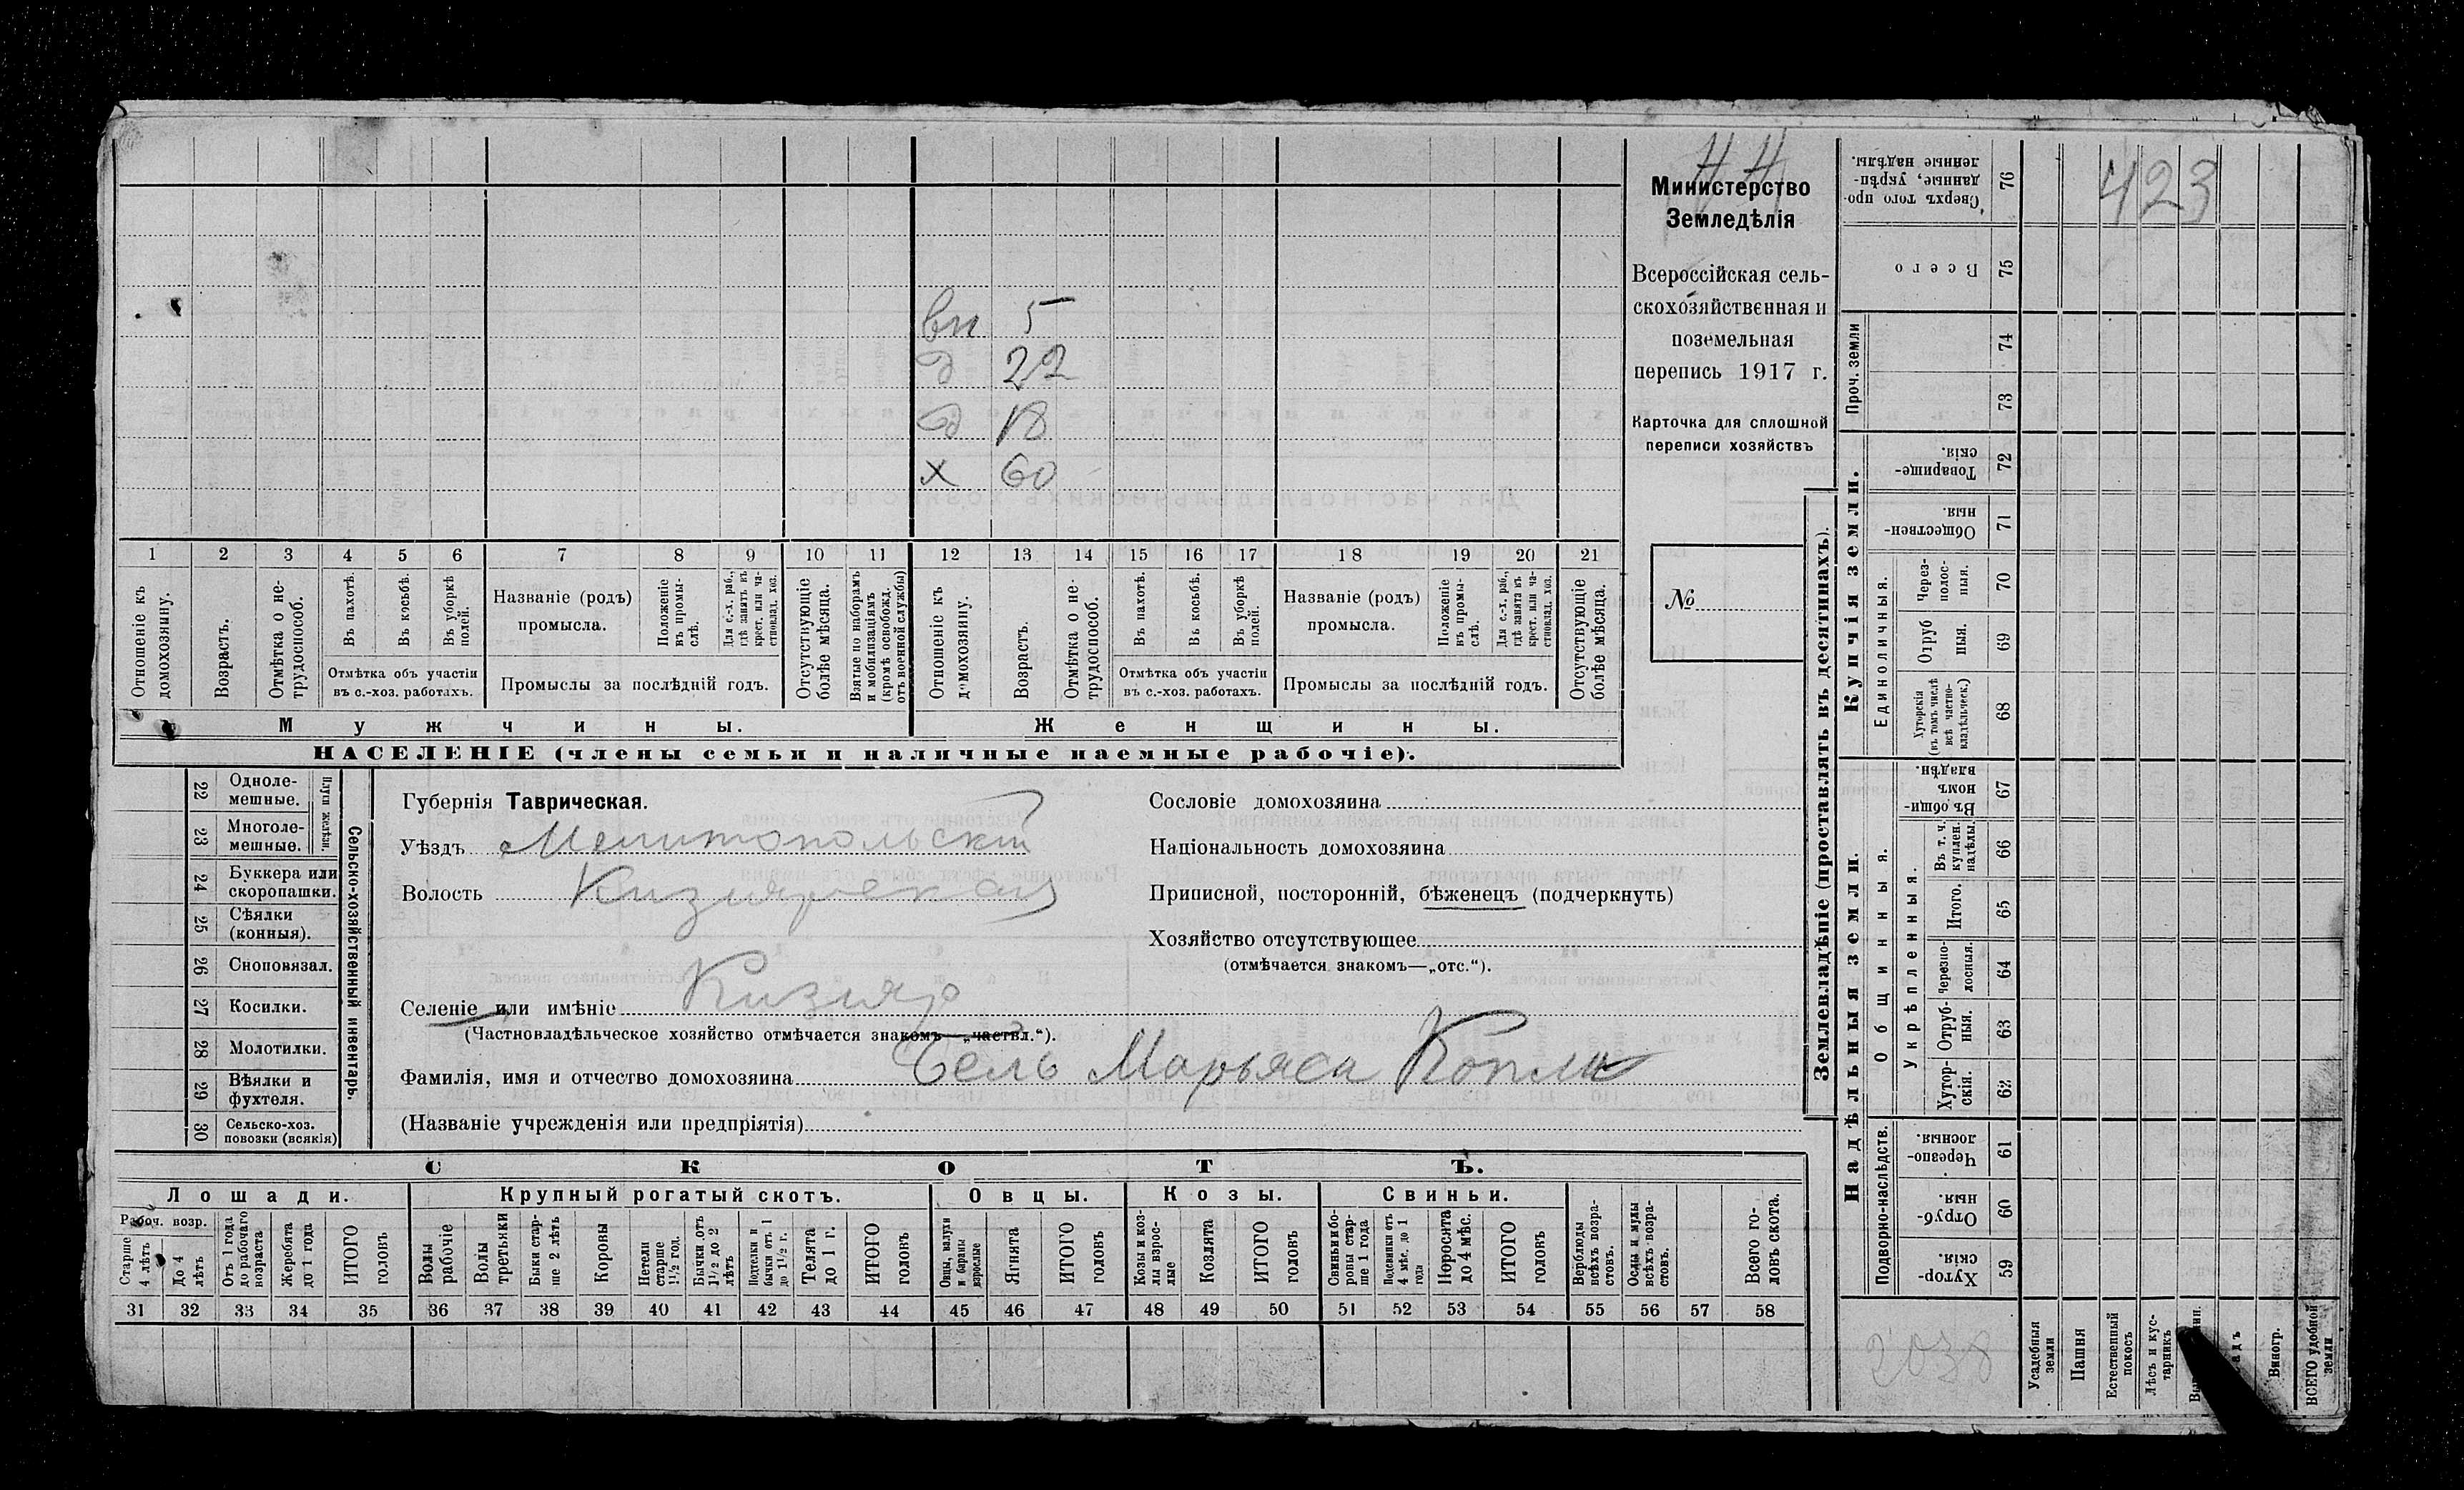 44
Министерство
Земледѣлія
Всероссійская сель-
скохозяйственная и
поземельная
перепись 1917 г.
Карточка для сплошной
переписи хозяйствъ
№
вн 5
д 22
д 18
х 60
1 2 3 4 5 6 7 8 9 10 11 12 13 14 15 16 17 18 19 20 21
Отношеніе къ домохозяину.
Возрастъ.
Отмѣтка о не-трудоспособ.
Въ пахотѣ.
Въ косьбѣ.
Въ уборкѣ полей.
Отмѣтка объ участіи
въ с.-хоз. работахъ.
Названіе (родъ)
промысла.
Положеніе въ промы-слѣ.
Для с.-х. раб., гдѣ занятъ въ крест. или ча-стновлад. хоз.
Промыслы за послѣдній годъ.
Отсутствующіе болѣе мѣсяца.
Взятые по наборамъ и мобилизаціямъ (кромѣ освобожд. отъ военной службы)
Отношеніе къ домохозяину.
Возрастъ.
Отмѣтка о не-трудоспособ.
Въ пахотѣ.
Въ косьбѣ.
Въ уборкѣ полей.
Отмѣтка объ участіи
въ с.-хоз. работахъ.
Названіе (родъ)
промысла.
Положеніе въ промы-слѣ.
Для с.-х. раб., гдѣ занята въ крест. или ча-стновлад. хоз.
Промыслы за послѣдній годъ.
Отсутствующіе болѣе мѣсяца.
Мужчины.
Женщины.
НАСЕЛЕНІЕ (члены семьи и наличные наемные рабочіе).
22 Одноле-мешные.
23 Многоле-мешные.
Плуги желѣзн.
24 Буккера или скоропашки.
25 Сѣялки (конныя).
26 Сноповязал.
27 Косилки.
28 Молотилки.
29 Вѣялки и фухтеля.
30 Сельско-хоз. повозки (всякія)
Сельско-хозяйственный инвентарь.
Губернія Таврическая.
Уѣздъ Мелитопольскій
Волость Кизиярская
Селеніе или имѣніе Кизияр
(Частновладѣльческое хозяйство отмѣчается знакомъ—„частвл.“).
Фамилія, имя и отчество домохозяина Бель Марьяса
(Названіе учрежденія или предпріятія)
Сословіе домохозяина
Національность домохозяина
Приписной, посторонній, бѣженецъ (подчеркнуть)
Хозяйство отсутствующее
(отмѣчается знакомъ—„отс.“).
СКОТЪ.
Лошади.
Крупный рогатый скотъ.
Овцы.
Козы.
Свиньи.
Рабоч. возр.
Старше 4 лѣтъ
До 4 лѣтъ
Отъ 1 года до рабочаго возраста
Жеребята до 1 года
ИТОГО головъ
Волы рабочіе
Волы третьяки
Быки стар-ше 2 лѣтъ
Коровы
Нетели старше 1½ год.
Бычки отъ 1½ до 2 лѣтъ
Подтелки и бычки отъ 1 до 1½ г.
Телята до 1 г.
ИТОГО головъ
Овцы, валухи и бараны взрослые
Ягнята
ИТОГО головъ
Козы и коз-лы взрос-лые
Козлята
ИТОГО головъ
Свиньи и бо-ровы стар-ше 1 года
Подсвинки отъ 4 мѣс. до 1 года
Поросята до 4 мѣс.
ИТОГО головъ
Верблюды всѣхъ возра-стовъ.
Ослы и мулы всѣхъ возра-стовъ.
Всего го-ловъ скота.
31 32 33 34 35 36 37 38 39 40 41 42 43 44 45 46 47 48 49 50 51 52 53 54 55 56 57 58
Землевладѣніе (проставлять въ десятинахъ).
423
Сверхъ того про-данные, укрѣп-ленные надѣлы. 76
Всего 75
Проч. земли 74 73
Купчія земли.
Товарище-скія. 72
Обществен-ныя. 71
Единоличныя.
Через-полос-ныя. 70
Отруб ныя. 69
Хуторскія (въ томъ числѣ всѣ частно-владѣльческ.) 68
Надѣльныя земли.
Общинныя.
Въ общи-номъ владѣн. 67
Укрѣпленныя.
Въ т. ч. куплен. надѣлы. 66
Итого. 65
Черезпо-лосныя. 64
Отруб-ныя. 63
Хутор-скія. 62
Подворно-наслѣдств.
Черезпо-лосныя. 61
Отруб-ныя. 60
Хутор-скія. 59
2038
Усадебныя земли
Пашня
Естественный покосъ
Лѣсъ и кус-тарникъ
Виногр.
ВСЕГО удобной земли